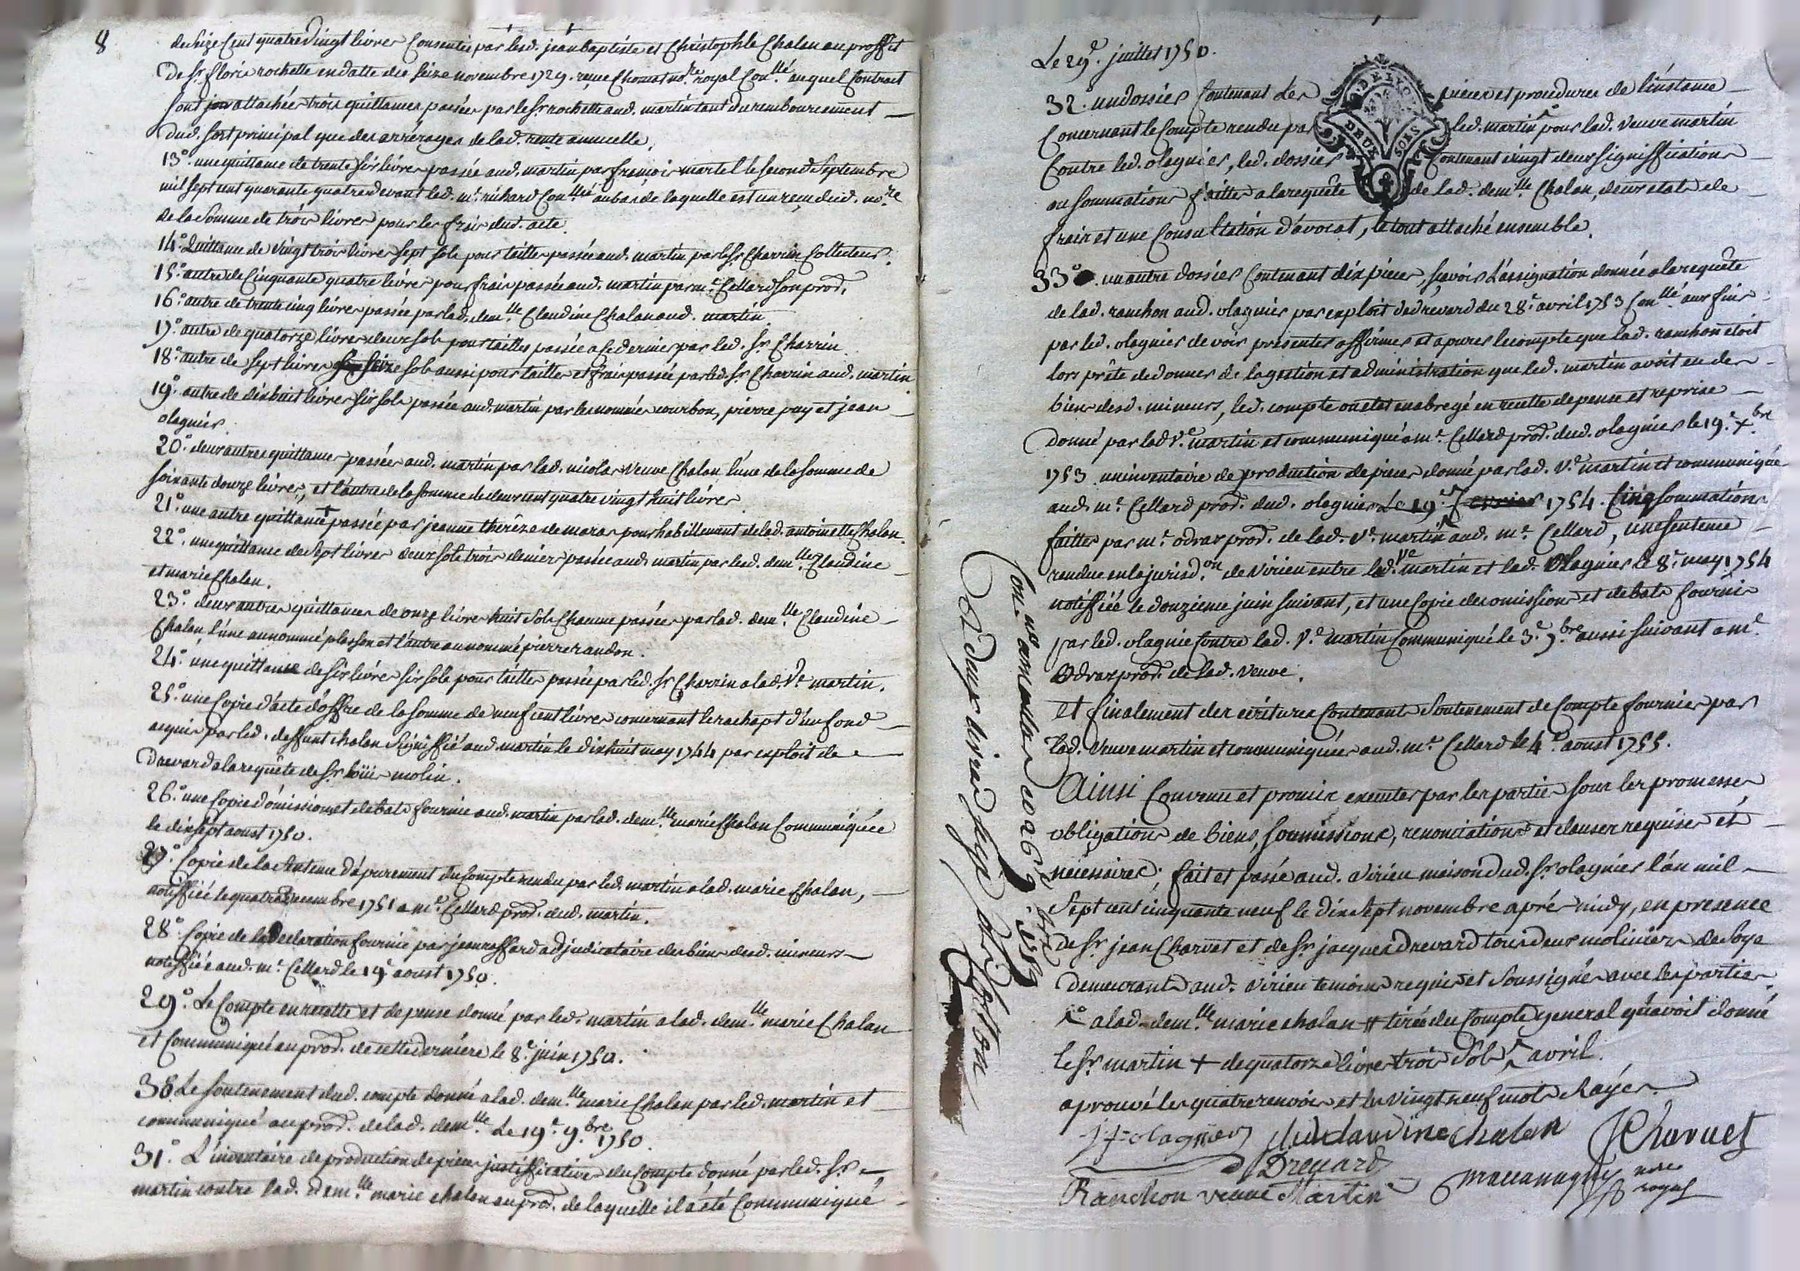 8
de seize Cent quatre vingt livres Consentie par lesd. jean baptiste et Christophle Chalan au proffit
De Sr. florie rochette en datte du seize novembre 1729. reçue Thomas nore. royal Conllé auquel Contrait
sont attachée trois quittances passées par le Sr rochette aud. martin tant du remboursement
dud. sort principal que des arrérages de lad. rente annuelle.
13°. une quittance de trente six livres passée aud. martin par françois martel le second septembre
mil sept cent quarante quatre devant led. me. richard Conllé au bas de laquelle est un reçu dud. nore
de la Somme de trois livres pour les frais dud. acte.
14°. Quittance de vingt trois livres sept sols pour tailles passée aud. martin par le Sr Charrin Collecteur.
15°. autre de Cinquante quatre livres pour frais passée aud. martin par me. Cellard son prod.
16°. autre de trente cinq livres passée par lad. demlle Claudine Chalan aud. martin.
17°. autre de quatorze livres deux sols pour tailles passée a ce dernier par led. Sr. Charrin.
18°. autre de sept livres seize sols aussi pour tailles et frais passée par led. Sr. Charrin aud. martin
19°. autre de dixhuit livres six sols passée aud. martin par les nommés courbon, pierre puy et jean
olagnier.
20°. deux autres quittances passées aud. martin par lad. nicolas veuve Chalan, l'une de la somme de
soixante douze livres, et l'autre de la somme de deux cent quatre vingt huit livres.
21°. une autre quittance passée par jeanne thérèze de maras pour habillement de lad. antoinette Chalan.
22°. une quittance de sept livres deux sols trois deniers passée aud. martin par lesd. demlles Claudine
et marie Chalan.
23°. deux autres quittances de onze livres huit sols Chacune passées par lad. demlle Claudine
Chalan, l'une au nommé plasson et l'autre au nommé pierre randon.
24°. une quittance de six livres six sols pour tailles passée par led. Sr Charrin a lad. Ve martin.
25°. une Copie d'acte d'offre de la somme de neuf cent livres concernant le rachapt d'un fond
acquis par led. deffunt chalan signiffié aud. martin le dixhuit may 1744 par exploit de
Drevard a la requête de Sr. louis molin.
26°. une Copie d'omissions et debats fournie aud. martin par lad. demlle marie Chalan Communiquée
le dix sept aoust 1750.
27°. Copie de la sentence d'apurement du Compte rendu par led. martin a lad. marie Chalan,
notiffiée le quatre decembre 1751 a me. Cellard prod. dud. martin.
28°. Copie de la declaration fournie par jean reffard adjudicataire des biens desd. mineurs
notiffiée aud. me. Cellard le 19e aoust 1750.
29°. Le Compte en recette et depense donné par led. martin a lad. demlle marie Chalan
et Communiqué au prod. de cette derniere le 8e. juin 1750.
30. Le soutenement dud. compte donné a lad. demlle marie Chalan par led. martin et
communiqué au prod. de lad. demlle Le 19e. 9bre 1750.
31°. L'inventaire de production de pieces justifficatives du Compte donné par led. Sr.
martin contre lad. demlle marie chalan au prod. de laquelle il a été Communiqué
Le 29e. juillet 1750.
G. DE LYON
DEUX SOLS
32. un dossier Contenant les pieces et procedures de l'instance
Concernant le Compte rendu par led. martin pour lad. veuve martin
Contre led. olagnier, led. dossier Contenant vingt deux signiffications
ou sommations faittes a la requête de lad. demlle Chalan, deux etats de
frais et une Consultation d'avocat, le tout attaché ensemble.
33°. un autre dossier Contenant dix pieces, savoir l'assignation donnée a la requête
de lad. ranchon aud. olagnier par exploit dud. drevard du 28e. avril 1753 Conllé aux fins
par led. olagnier de voir presenter affirmer et apurer le compte que lad. ranchon étoit
lors prête de donner de la gestion et administration que led. martin avoit eu des
biens desd. mineurs, led. compte ou etat en abregé en recette depense et reprise
donné par lad. Ve. martin et communiqué a me. Cellard prod. dud. olagnier le 19e. xbre
1753. un inventaire de production de pieces donné par lad. Ve. martin et communiqué
aud. me. Cellard prod. dud. olagnier Le 19e. 1754. Cinq sommations
faittes par me. odrax prod. de lad. Ve. martin aud. me. Cellard, une sentence
rendue en la jurisdon. de Virieu entre lad. Ve martin et led. Olagnier le 8e. may 1754
notiffiée le douzieme juin suivant, et une Copie des omissions et debats fournis
par led. olagnier Contre lad. Ve. martin Communiqué le 3e. 9bre aussi suivant a me.
Odrax prod. de lad. veuve.
et finalement des ecritures Contenant Soutenement de Compte fournies par
lad. veuve martin et communiquées aud. me. Cellard le 4e. aoust 1755.
Ainsi Convenu et promix executer par les parties sous les promesses
obligations de biens, soumissions, renonciations et clauses requises et
nécéssaires; fait et passé aud. Virieu maison dud. Sr. olagnier l'an mil
sept cent cinquante neuf le dix sept novembre aprés midy, en presence
de Sr. jean Charvet et de Sr. jacques Drevard tous deux moliniers de soye
demeurants aud. Virieu temoins requis et soussignés avec les parties.
a lad. demlle marie chalan # tirée du Compte general qu'avoit donné
le Sr. martin + de quatorze livres trois sols avril.
aprouvé les quatre renvois et les vingt neuf mots Rayés.
Olagnier Claudine Chalan JCharvet
Drevard
Ranchon veuve Martin nore royal